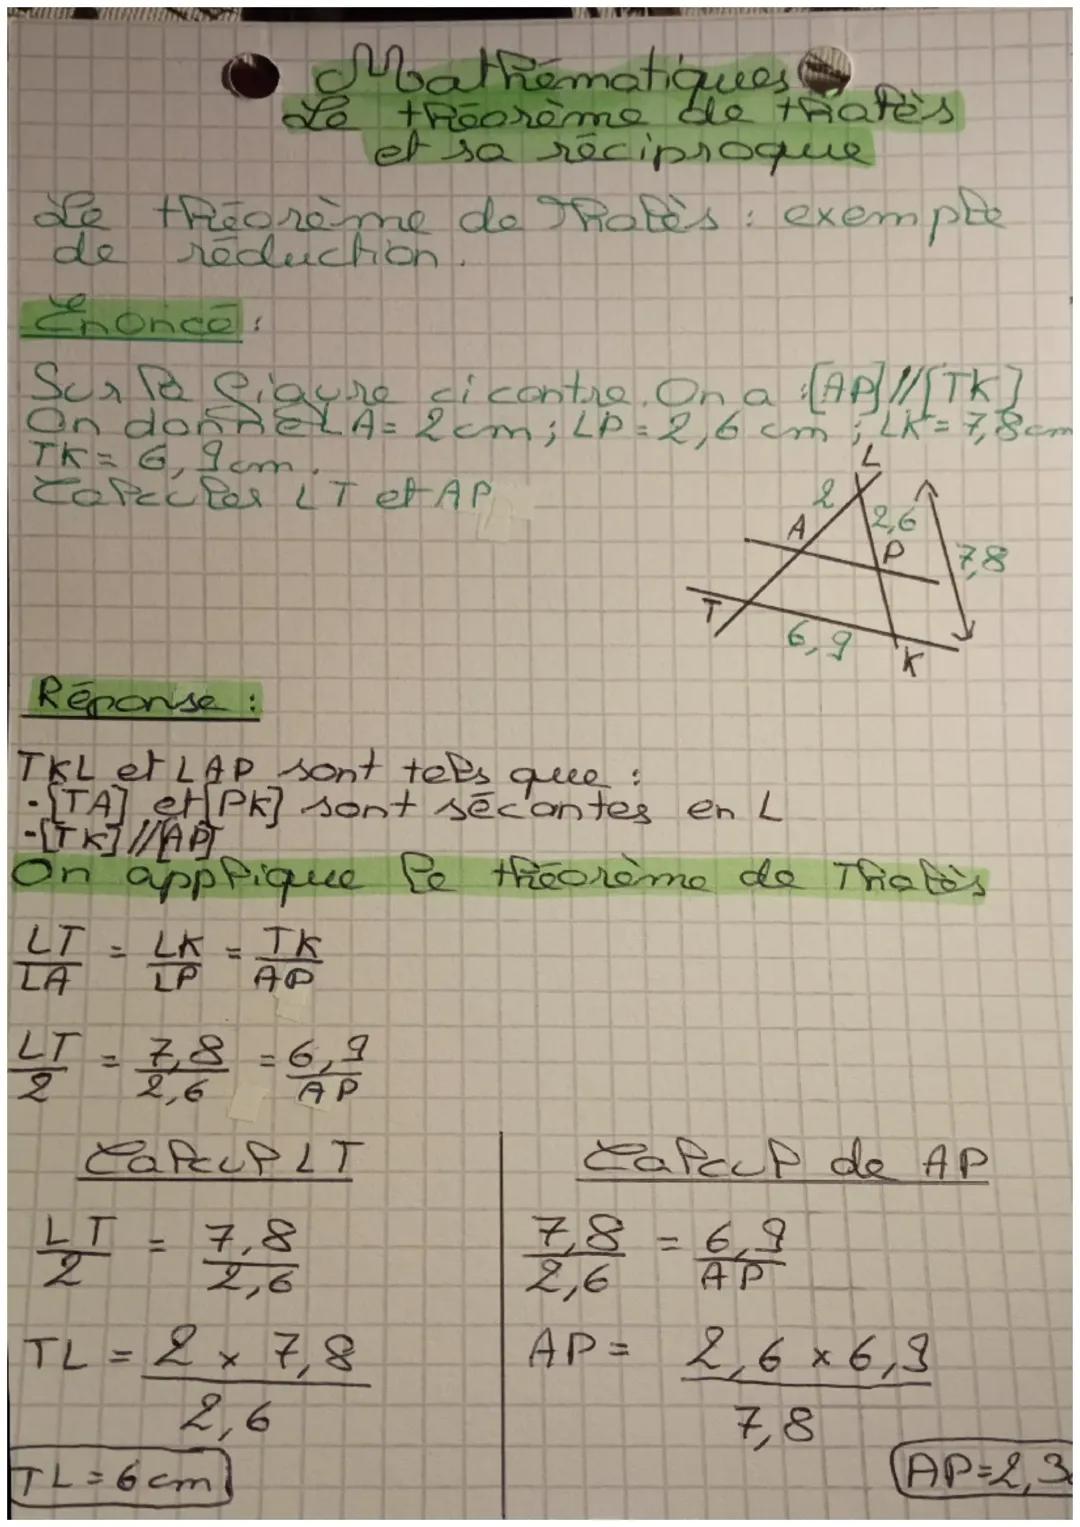 Mathématiques
Le théorème de thalès
et sa réciproque
Le théorème de Thalès : exemple
de réduction.
Énoncé :
Sur la figure ci contre. On a :[AP]//[TK]
On donne LA = 2cm ; LP = 2,6 cm ; LK = 7,8cm
TK = 6,9cm.
Calculer LT et AP
L
2
2,6
A
P
7,8
T
6,9
K
Réponse :
TKL et LAP sont tels que :
-[TA] et [PK] sont sécantes en L
-[TK]//[AP]
On applique le théorème de Thalès
LT/LA = LK/LP = TK/AP
LT/2 = 7,8/2,6 = 6,9/AP
Calcul LT
LT/2 = 7,8/2,6
TL = 2 x 7,8/2,6
TL = 6cm
Calcul de AP
7,8/2,6 = 6,9/AP
AP = 2,6 x 6,9/7,8
AP=2,3